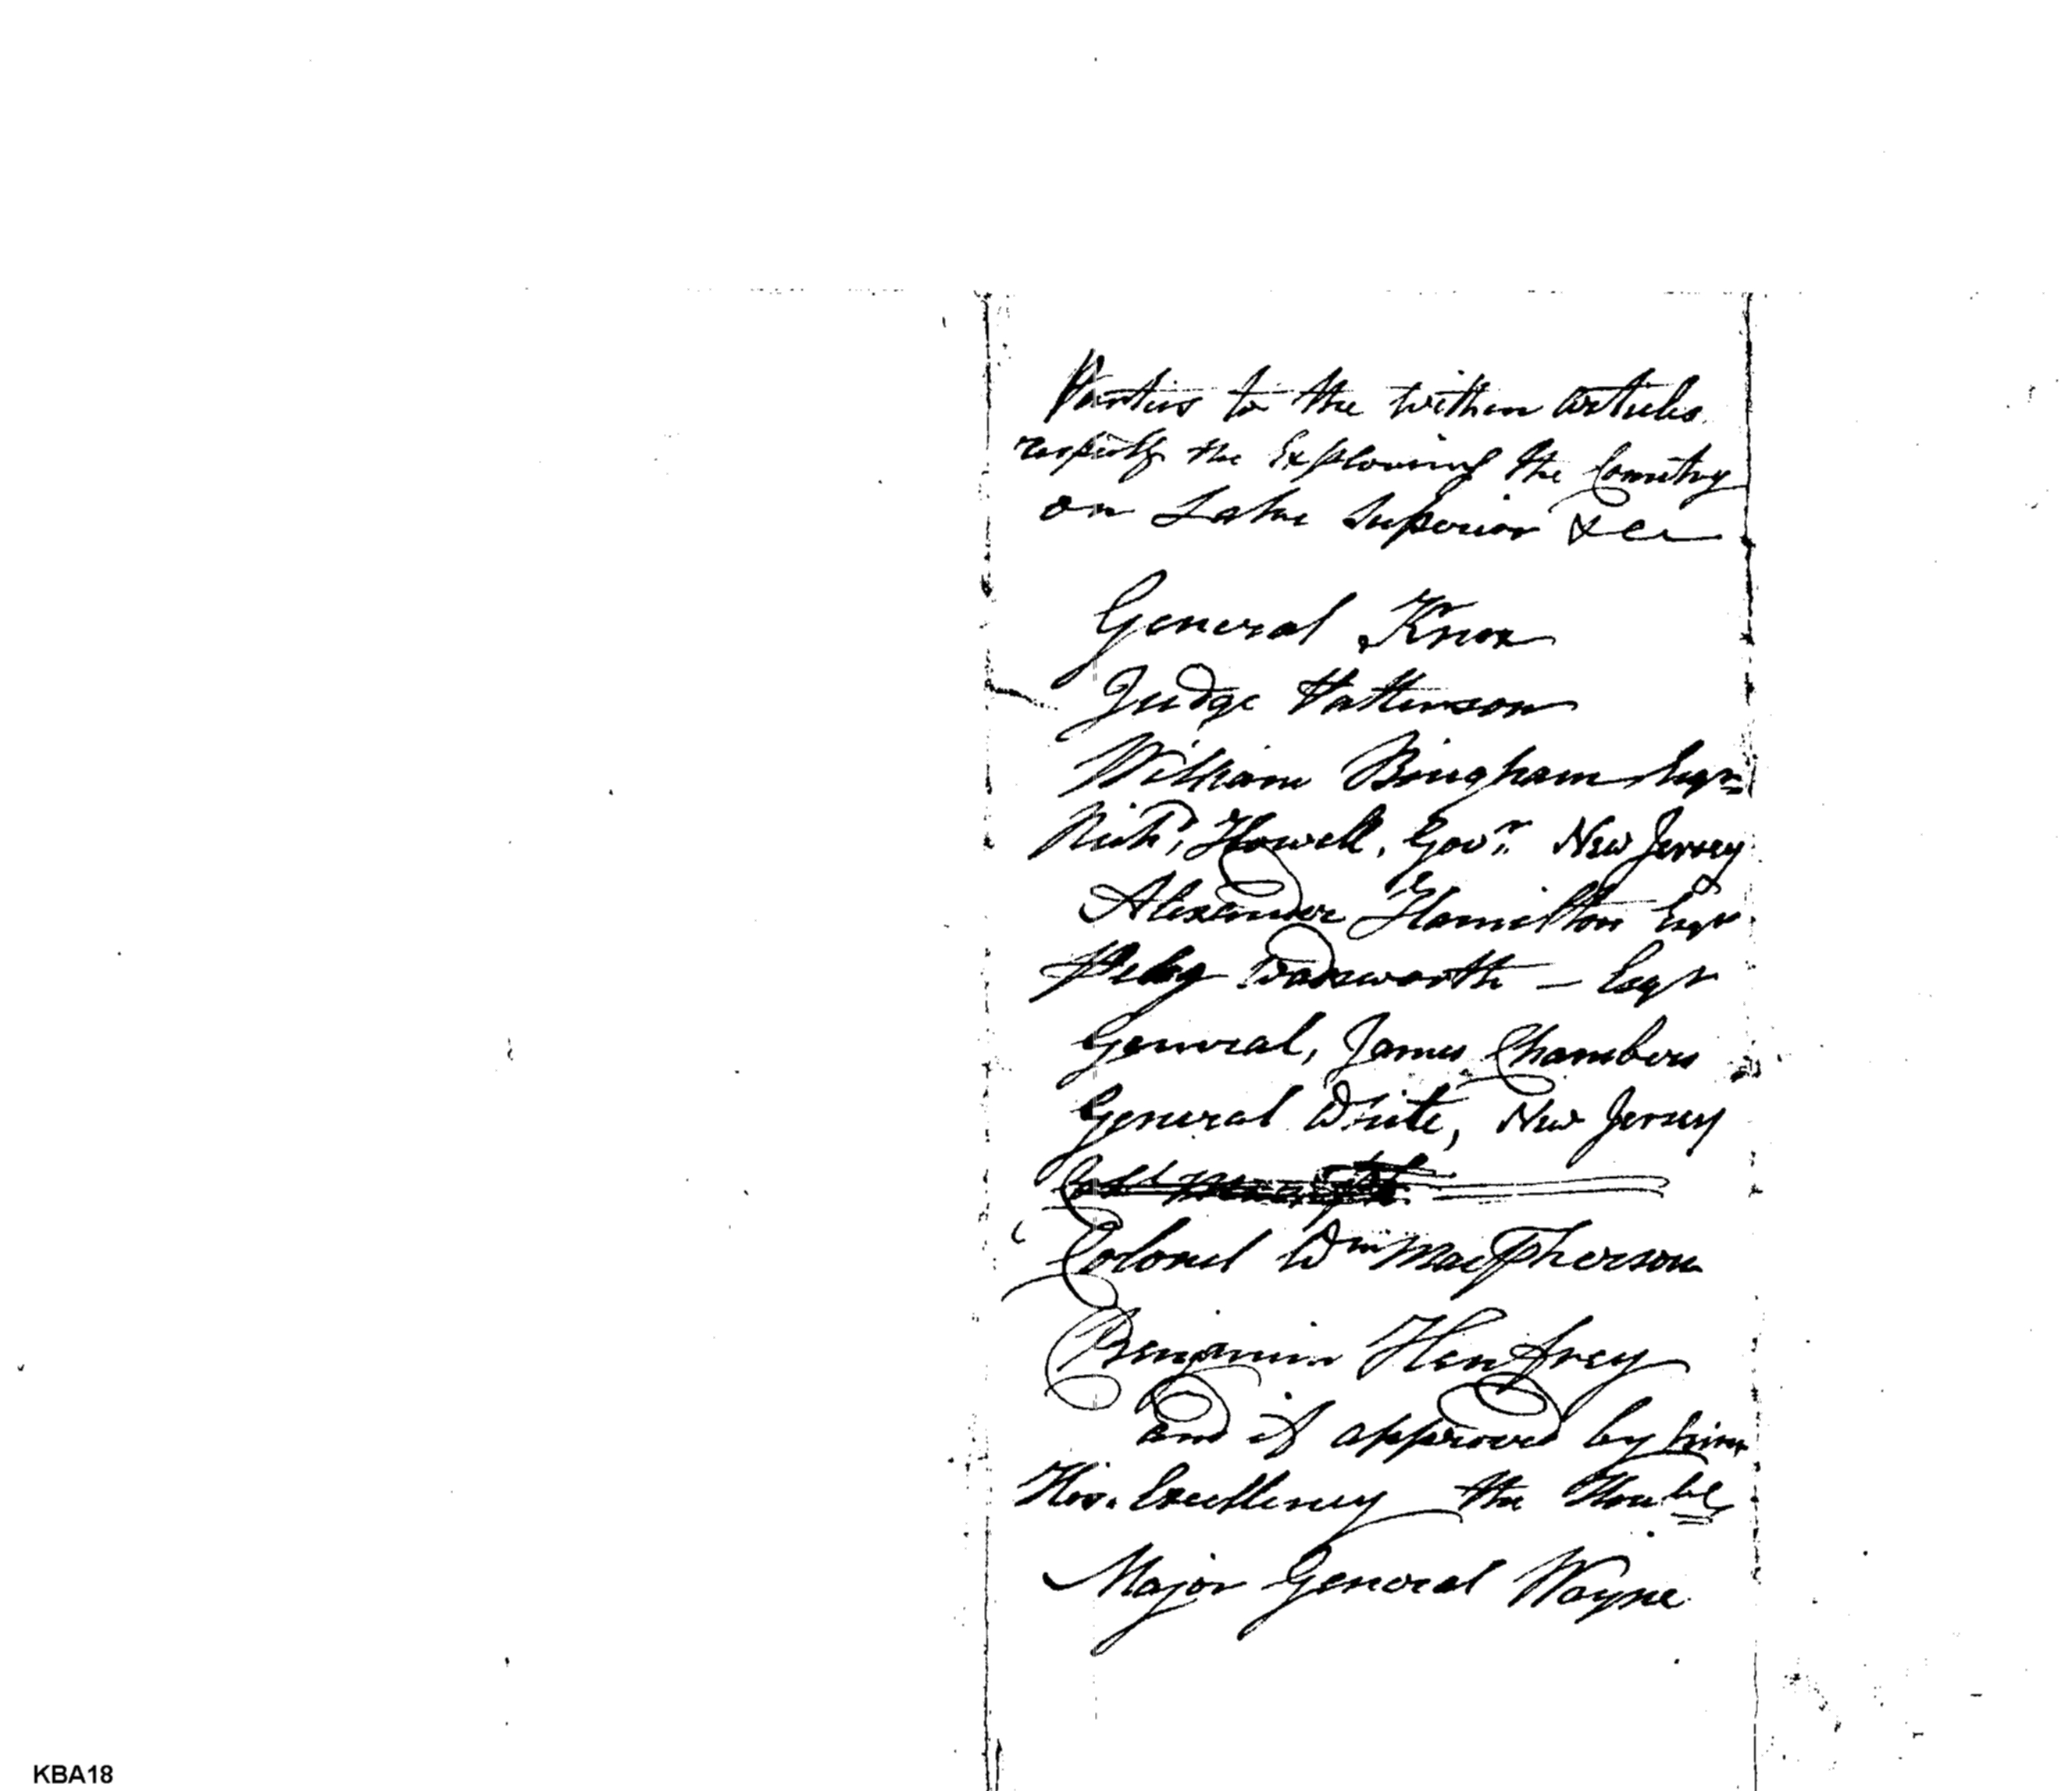 Parties to the within articles
respectg the Exploring the Country
on Lake Superior &ca
General Knox
Judge Patterson
William Bingham Esqr
Richd, Howell, Govr. New Jersey
Alexander Hamilton Esqr
Peleg Wadsworth - Esqr
General, James Chambers
General White, New Jersey
Colonel Wm MacPherson
Benjamin Henfrey
and if approved by him
His. Excellency the Honble
Major General Wayne
KBA18